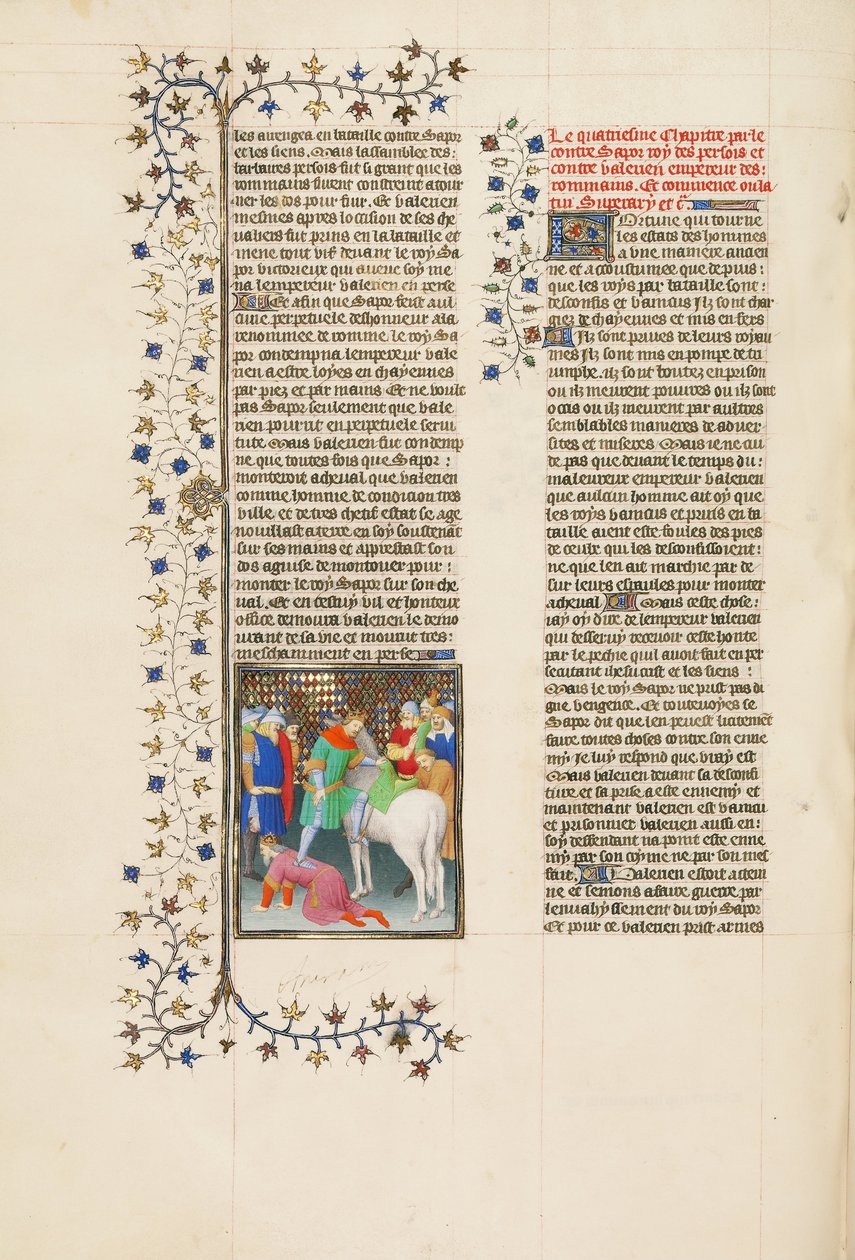 les auengea en bataille contre Sapor
et les siens. Mais lassamblee des :
tartaires persois fut si grant que les
rommains furent constreint atour
ner les dos pour fuir. Et valerien
mesmes apres locision de ses che
ualiers fut prins en la bataille et
mene tout vif deuant le roy Sa
por victorieux qui auec soy me
na lempereur valerien en perse
Et afin que Sapor feist aul
cune perpetuele deshonneur ala
renommee de romme. le roy Sa
por condempna lempereur vale
rien a estre loyes en chayennes
par piez et par mains Et ne voult
pas Sapor seulement que vale
rien pourrit en perpetuele serui
tute Mais valerien fut condemp
ne que toutes fois que Sapor :
monteroit acheual que valerien
comme homme de condicion tres
ville. et de tres chetif estat se age
nouillast aterre en soy soustenant
sur ses mains et apprestast son
dos aguise de montouer pour :
monter le roy Sapor sur son che
ual. Et en cestuy vil et honteux
office demoura valerien le demo
urant de sa vie et mourut tres :
meschamment en perse
Le quatriesme Chapitre parle
contre Sapor roy des persois et
contre valerien empereur des :
rommains. Et commence ou la
tin. Superary et c̃.
Fortune qui tourne
les estats des hommes
a vne maniere ancien
ne et acoustumee que depuis :
que les roys par bataille sont :
desconfis et vaincus Ilz sont char
giez de chayennes et mis en fers
Ilz sont priues de leurs royau
mes Ilz sont mis en pompe de tri
umphe. ilz sont boutez en prison
ou ilz meurent pouures ou ilz sont
occis ou ilz meurent par aultres
semblables manieres de aduer
sites et miseres Mais ie ne cui
de pas que deuant le temps du :
maleureux empereur valerien
que aulcun homme ait oy que
les roys vaincus et prins en ba
taille aient este foules des pies
de ceulx qui les desconfissoient :
ne que len ait marchie par de
sur leurs espaules pour monter
acheual Mais ceste chose :
iay oy dire de lempereur valerien
qui desseruy receuoir ceste honte
par le pechie quil auoit fait en per
secutant ihesucrist et les siens :
Mais le roy Sapor ne prist pas di
gne vengence. Et toutesuoyes se
Sapor dit que len peuest licitement
faire toutes choses contre son enne
my Ie luy respond que vray est
Mais valerien deuant sa desconfi
ture et sa prise a este ennemy et
maintenant valerien est vaincu
et prisonnier valerien aussi en :
soy deffendant na point este enne
my par son cryme ne par son mes
fait. Valerien estoit actein
ne et semons afaire guerre par
lenuahyssement du roy Sapor
Et pour ce valerien prist armes